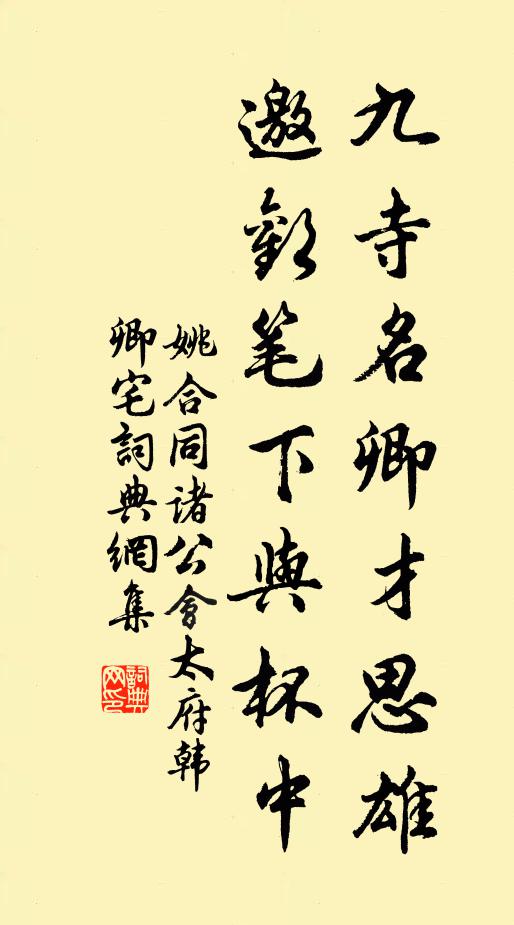 九寺名卿才思雄
邀歡笔下與杯中
姚合同諸公會太府韩
卿宅詞典網集
詞典网印